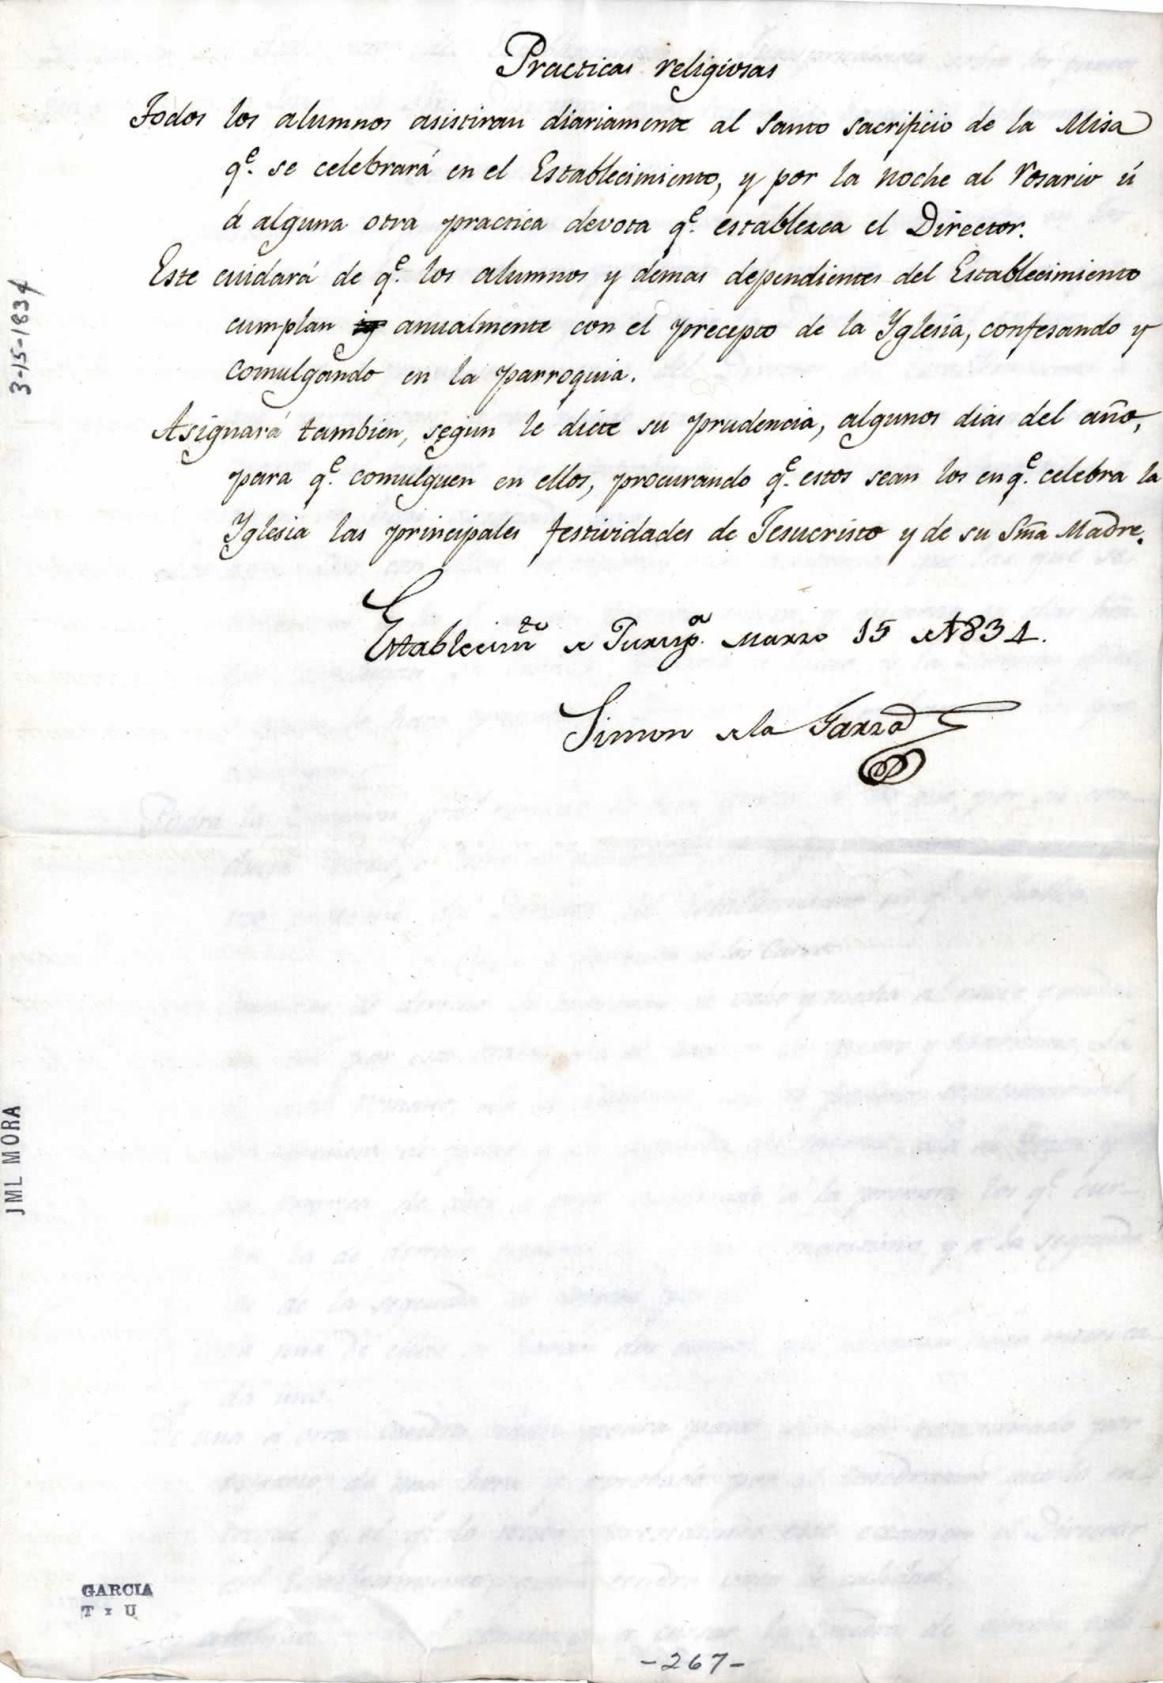 Practicas religiosas
Todos los alumnos asistiran diariamente al Santo sacrificio de la Misa
q.e se celebrará en el Establecimiento, y por la noche al rosario ú
á alguna otra practica devota q.e establezca el Director.
Este cuidará de q.e los alumnos y demas dependientes del Establecimiento
cumplan anualmente con el precepto de la Yglesia, confesando y
comulgando en la parroquia.
Asignará tambien, segun le dicte su prudencia, algunos dias del año,
para q.e comulguen en ellos, procurando q.e estos sean los en q.e celebra la
Yglesia las principales festividades de Jesucristo y de su Sma Madre.
Establecim.to de Marzo 15 de 1834.
Simon de la Garza
3-15-1834
JML MORA
GARCIA
T x U
-267-